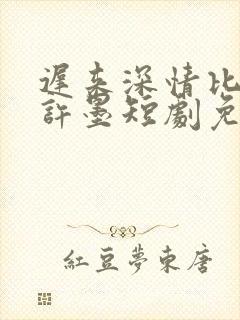 遲来深情比
許墨短劇免
紅豆夢東唐